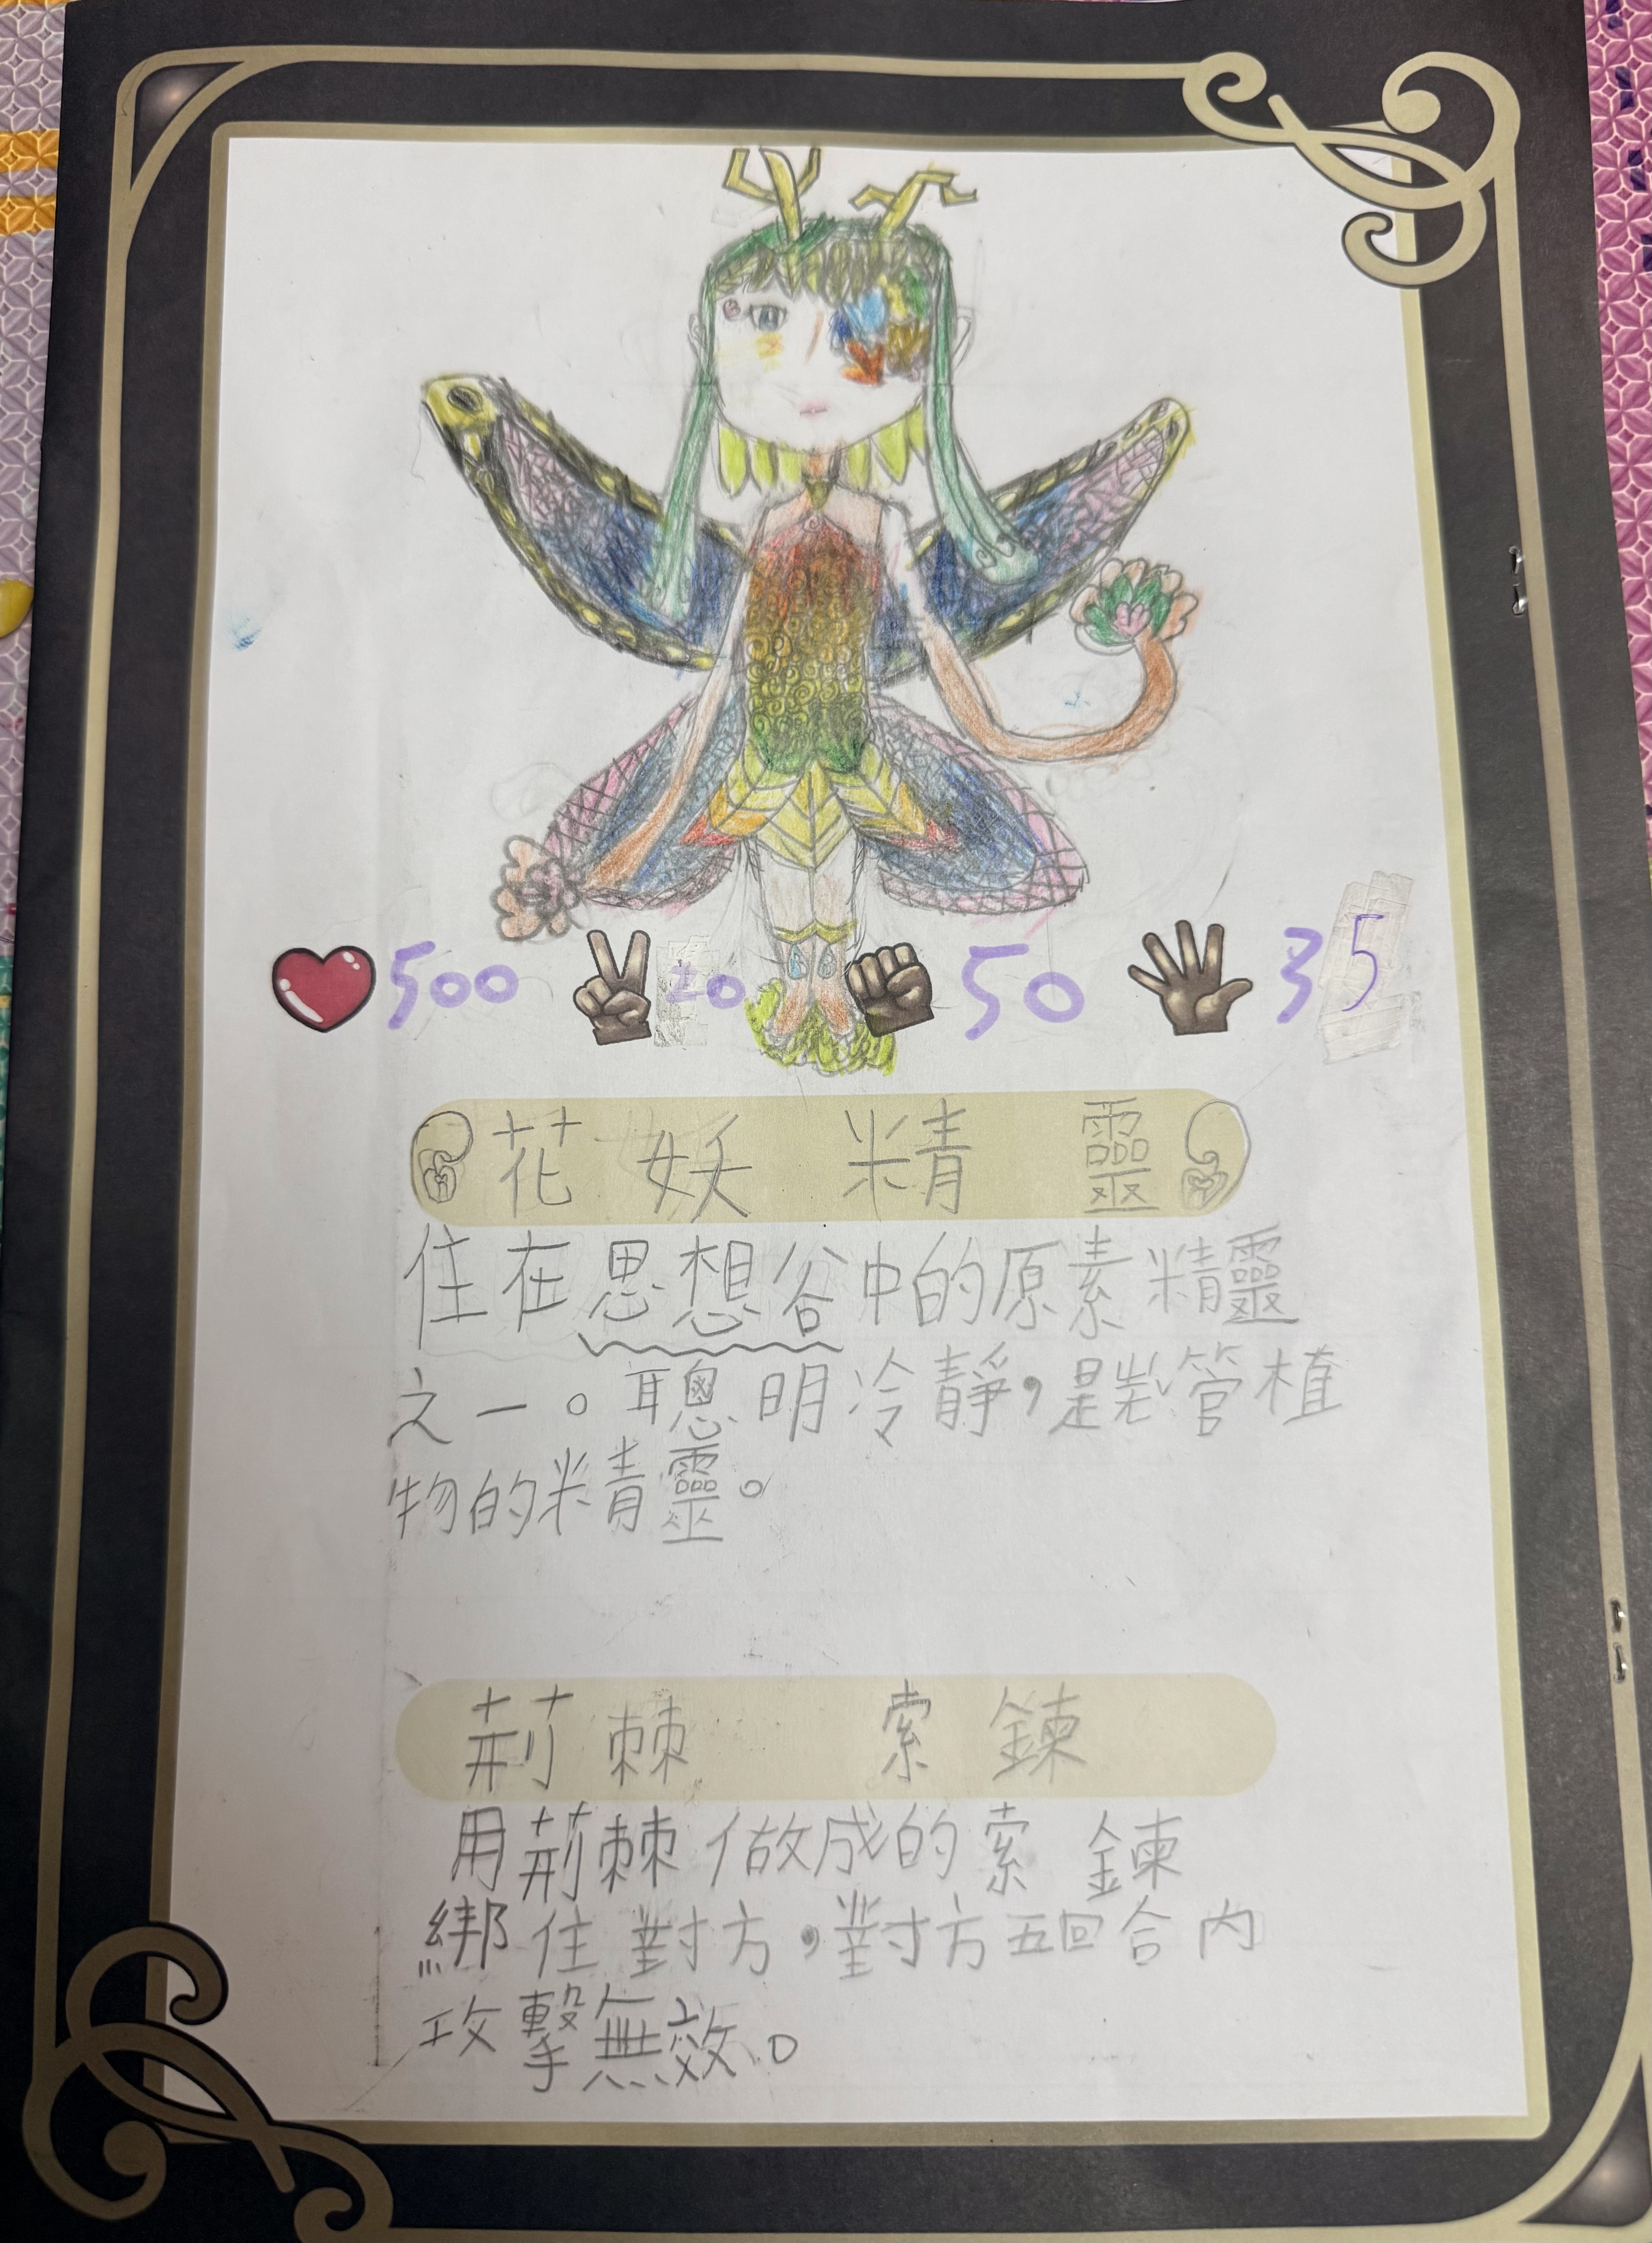 500 20 50 35
花妖精靈
住在思想谷中的原素精靈
之一。聰明冷靜,是掌管植
物的精靈。
荊棘 索鍊
用荊棘做成的索鍊
綁住對方,對方五回合內
攻擊無效。